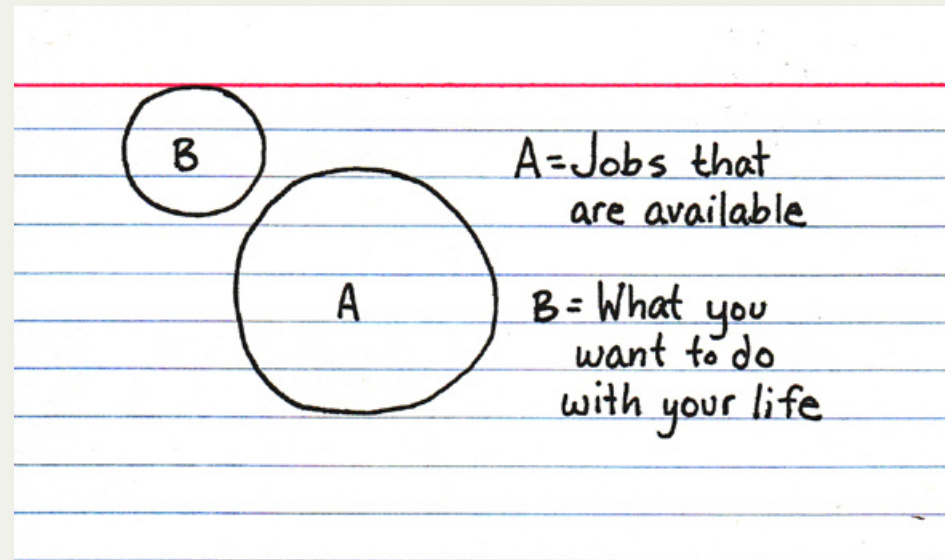 B
A
A=Jobs that
are available
B=What you
want to do
with your life